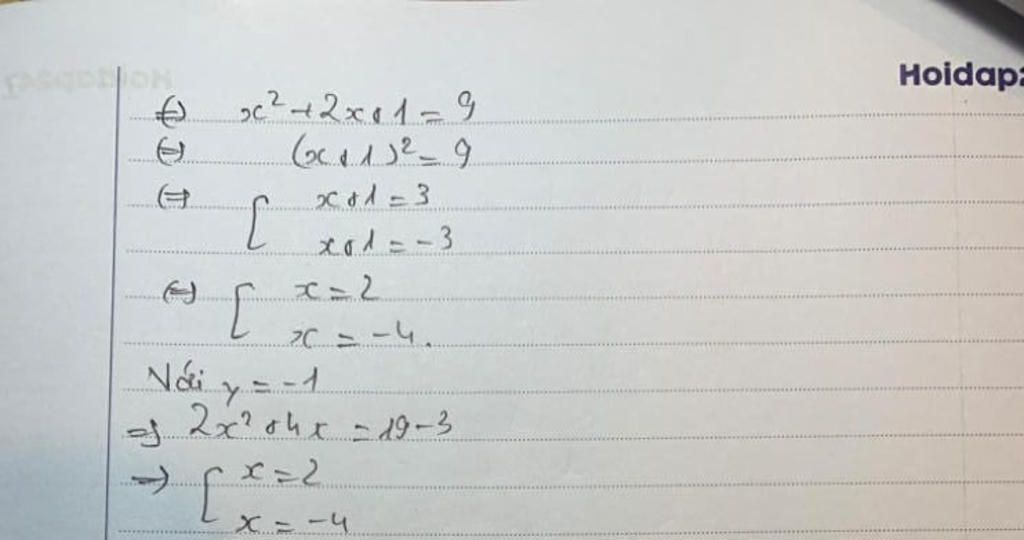 Hoidap
⇔ x² + 2x + 1 = 9
⇔ (x + 1)² = 9
⇔ [ x + 1 = 3
x + 1 = -3
⇔ [ x = 2
x = -4.
Với y = -1
⇒ 2x² + 4x = 19 - 3
⇒ [ x = 2
x = -4